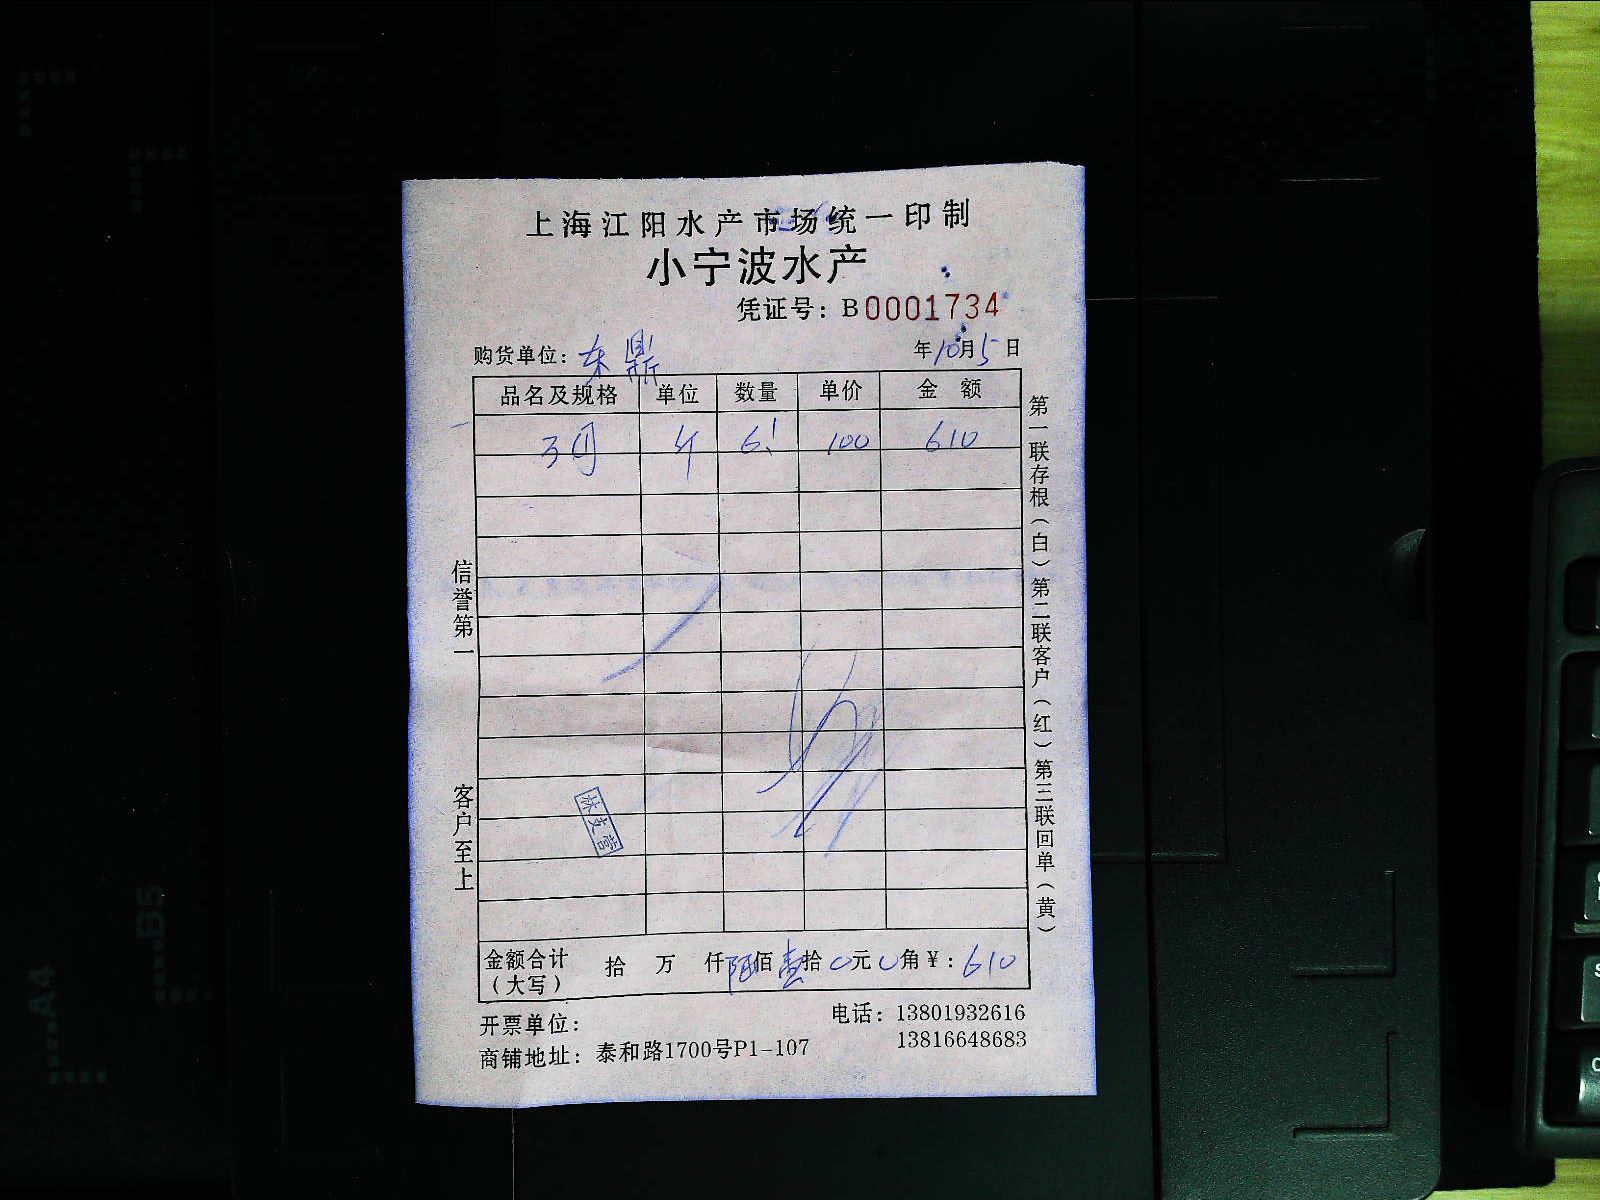 上海江阳水产市场统一印制
小宁波水产
凭证号：B0001734
购货单位：东鼎 年10月5日
品名及规格 单位 数量 单价 金额
斤 6.1 100 610
信誉第一
客户至上
第一联存根（白）第二联客户（红）第三联回单（黄）
金额合计 拾 万 仟陆佰壹拾0元0角¥：610
（大写）
开票单位：
电话：13801932616
13816648683
商铺地址：泰和路1700号P1-107
B5
A4